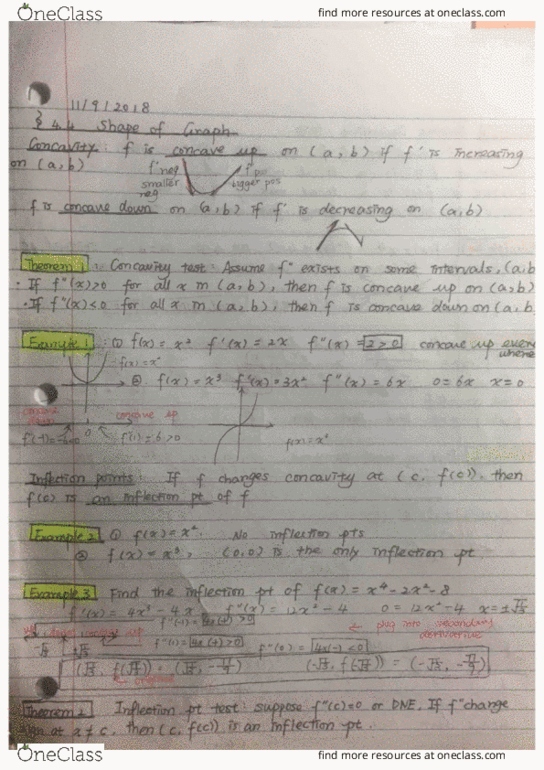 OneClass
find more resources at oneclass.com
11/9/2018
§ 4.4 Shape of Graph
Concavity: f is concave up on (a, b) if f' is increasing
on (a, b)
f' neg
smaller
neg
f' pos
bigger pos
f is concave down on (a, b) if f' is decreasing on (a, b)
Theorem 1: Concavity test: Assume f" exists on some intervals, (a,b
· If f"(x)>0 for all x in (a, b), then f is concave up on (a, b)
· If f"(x)<0 for all x in (a, b), then f is concave down on (a, b
Example 1: ① f(x) = x² f'(x) = 2x f"(x) = 2>0 concave up every
where
f(x) = x²
② f(x) = x³ f'(x) = 3x² f"(x) = 6x 0=6x x=0
concave
down
concave up
0
f"(1) = 6>0
f(x) = x³
Inflection points: If f changes concavity at (c, f(c)), then
f(c) is an inflection pt of f
Example 2 ① f(x) = x². No inflection pts
② f(x) = x³, (0,0) is the only inflection pt
Example 3 Find the inflection pt of f(x) = x⁴ - 2x² - 8
f'(x) = 4x³ - 4x f"(x) = 12x² - 4 0 = 12x² - 4
f"(-1) =
plug into secondary
derivative
f"(1) =
f"(0) =
Theorem 2 Inflection pt test: suppose f"(c)=0 or DNE. If f" change
sign at x = c, then (c, f(c)) is an inflection pt.
OneClass
find more resources at oneclass.com